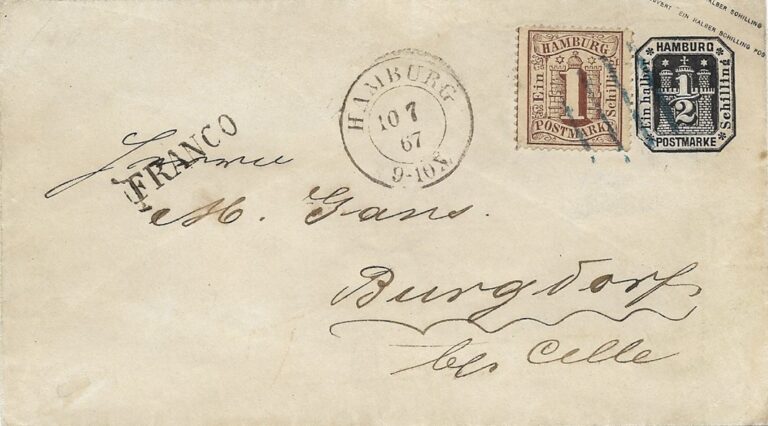 EIN HALBER SCHILLING POS
UVERT EIN HALBER SCHILLING
HAMBURG
10 7
67
9-10
FRANCO
HAMBURG
Ein
1
Schilling
POSTMARKE
HAMBURG
Ein halber
1/2
Schilling
POSTMARKE
Herrn
M. Gans.
Burgdorf
bei Celle